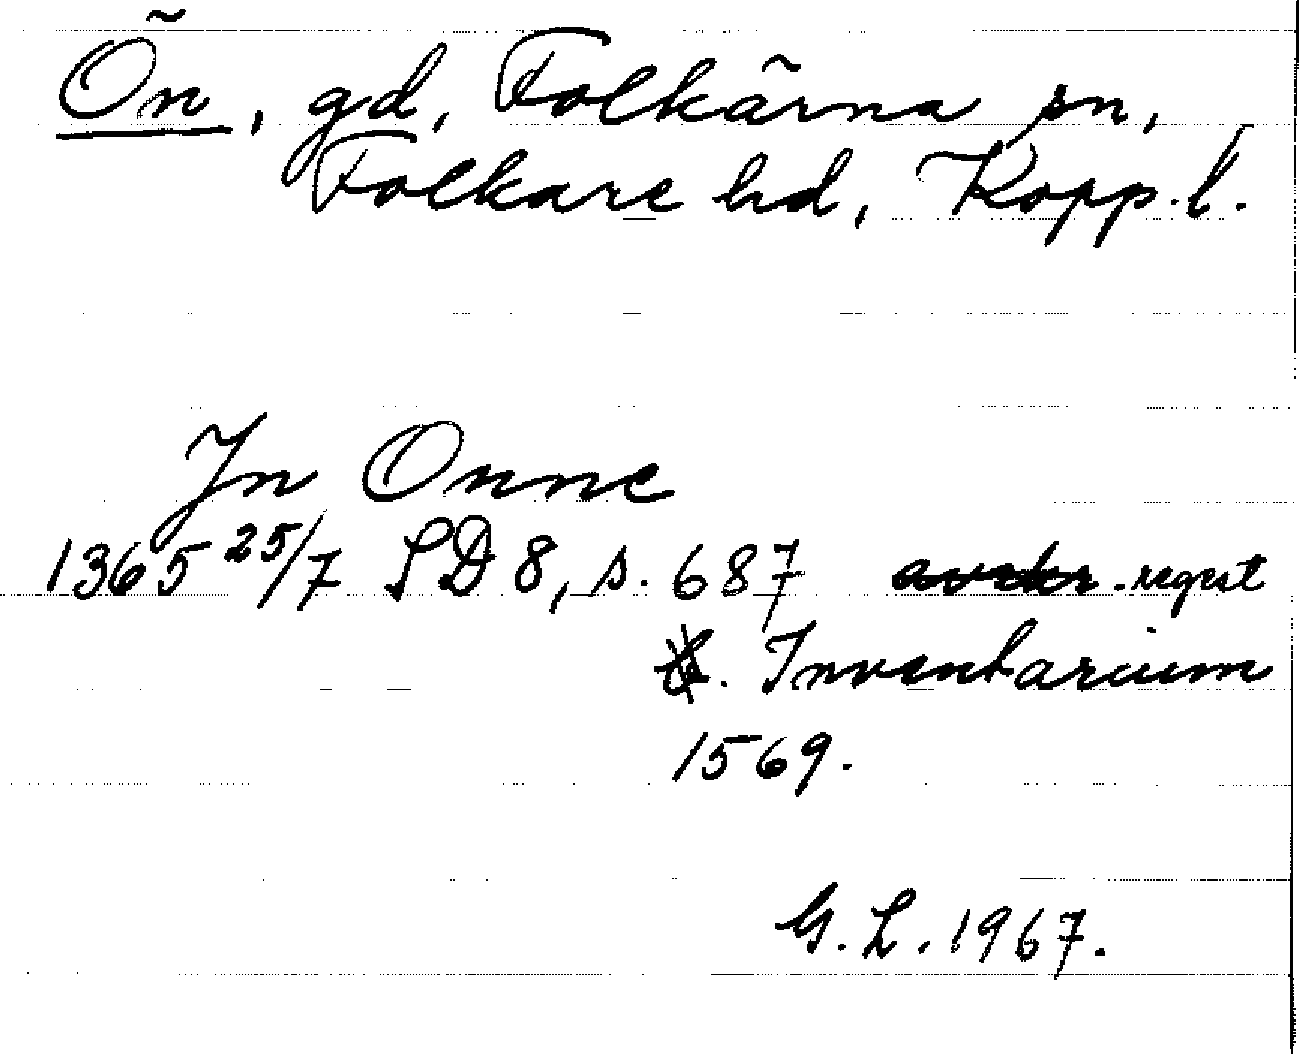 Ön, gd, Folkärna sn,
Folkare hd, Kopp. l.
In Onne
1365 25/7 SD 8, s. 687 regest
Inventarium
1569.
G. L. 1967.